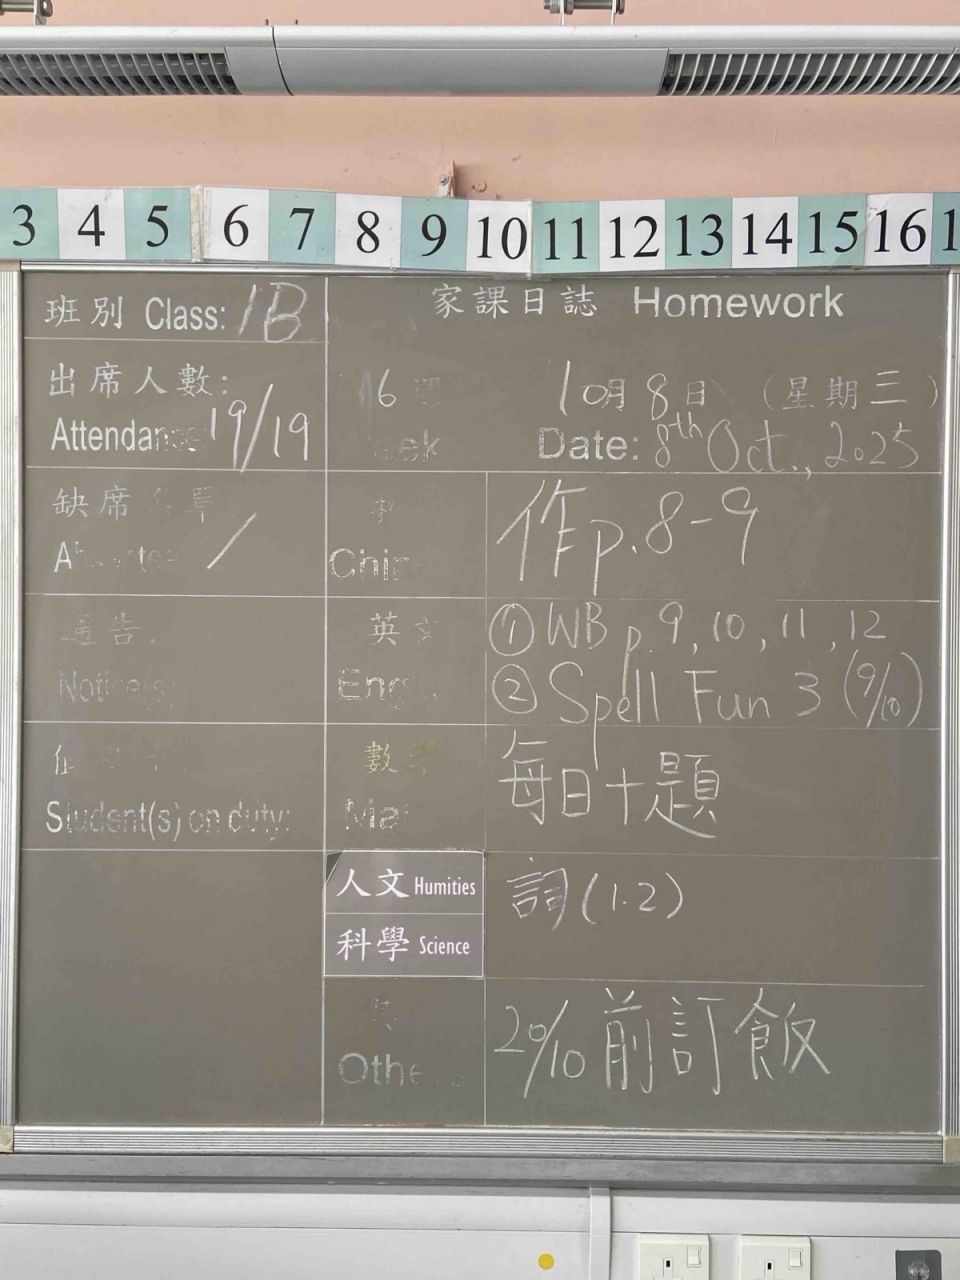 3 4 5 6 7 8 9 10 11 12 13 14 15 16 1
班別 Class: 1B
家課日誌 Homework
出席人數:
Attendan 19/19
16 週
eek
10月8日 (星期三)
Date: 8th Oct., 2025
缺席 單
A /
Chin
作p.8-9
通告
Noti
英文
Eng
① WB p.9, 10, 11, 12
② Spell Fun 3 (9/10)
Student(s) on duty:
數學
Mat
每日十題
人文 Humities
科學 Science
詞(1.2)
其
Othe
20/10前訂飯